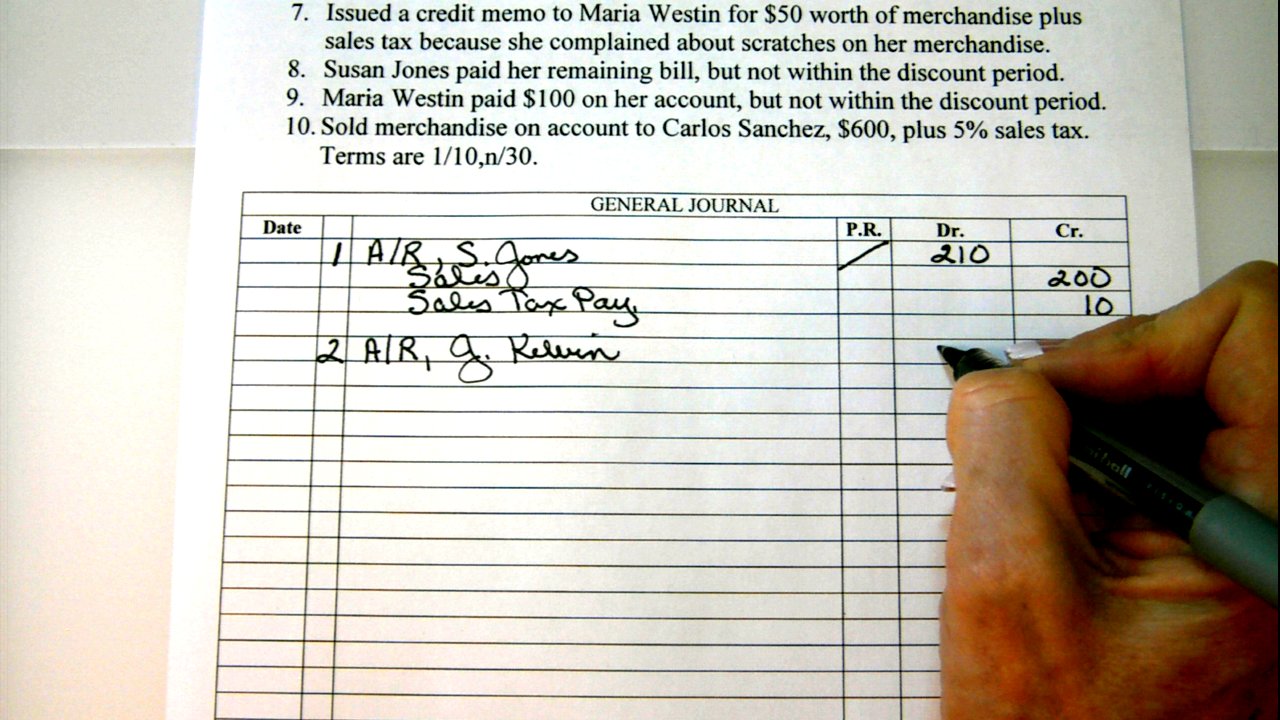 7. Issued a credit memo to Maria Westin for $50 worth of merchandise plus
sales tax because she complained about scratches on her merchandise.
8. Susan Jones paid her remaining bill, but not within the discount period.
9. Maria Westin paid $100 on her account, but not within the discount period.
10. Sold merchandise on account to Carlos Sanchez, $600, plus 5% sales tax.
Terms are 1/10,n/30.
GENERAL JOURNAL
Date P.R. Dr. Cr.
1 A/R, S. Jones 210
Sales 200
Sales Tax Pay. 10
2 A/R, J. Kelvin